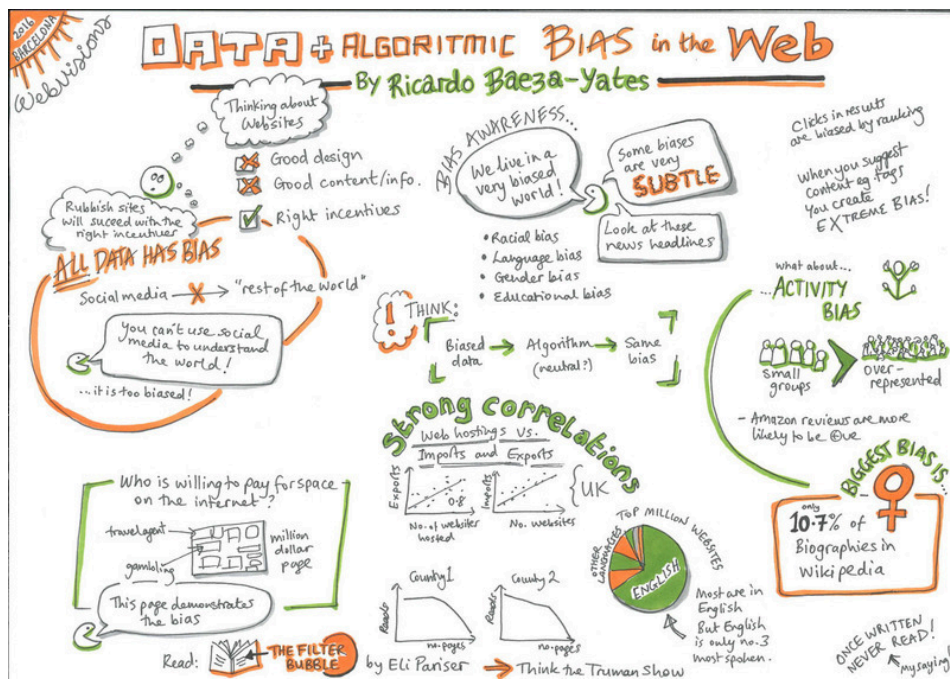 2016
BARCELONA
WebVisions
DATA + ALGORITMIC BIAS in the Web
By Ricardo Baeza-Yates
Thinking about
Websites
Good design
Good content/info.
Right incentives
Rubbish sites
will succeed with the
right incentives
ALL DATA HAS BIAS
Social media → "rest of the world"
You can't use social
media to understand
the world!
...it is too biased!
BIAS AWARENESS...
We live in a
very biased
world!
Some biases
are very
SUBTLE
Look at these
news headlines
• Racial bias
• Language bias
• Gender bias
• Educational bias
Clicks in results
are biased by ranking
When you suggest
content eg. tags
You create
EXTREME BIAS!
! THINK:
Biased
data
→ Algorithm
(neutral?)
→ Same
bias
what about...
...ACTIVITY
BIAS
small
groups
over-
represented
- Amazon reviews are more
likely to be +ve
Strong correlations
Web hostings Vs.
Imports and Exports
Exports
0.8
No. of websites
hosted
Imports
No. websites
UK
Who is willing to pay for space
on the internet?
travel agent
gambling
million
dollar
page
This page demonstrates
the bias
Read:
THE FILTER
BUBBLE
by Eli Pariser → Think the Truman Show
Country 1
Reads
no. pages
Country 2
Reads
no. pages
TOP MILLION WEBSITES
OTHER
LANGUAGES
ENGLISH
Most are in
English
But English
is only no.3
most spoken.
BIGGEST BIAS IS...
only
10.7% of
Biographies in
Wikipedia
ONCE WRITTEN
NEVER READ!
My saying!